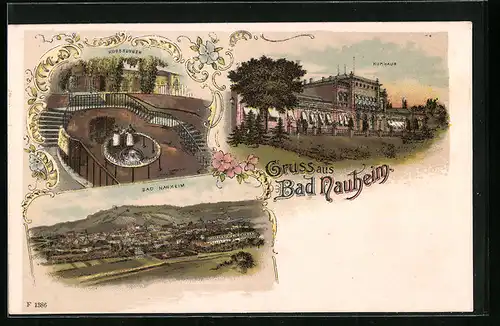 KURBRUNNEN
KURHAUS
Gruss aus
Bad Nauheim
BAD NAUHEIM
F 1386